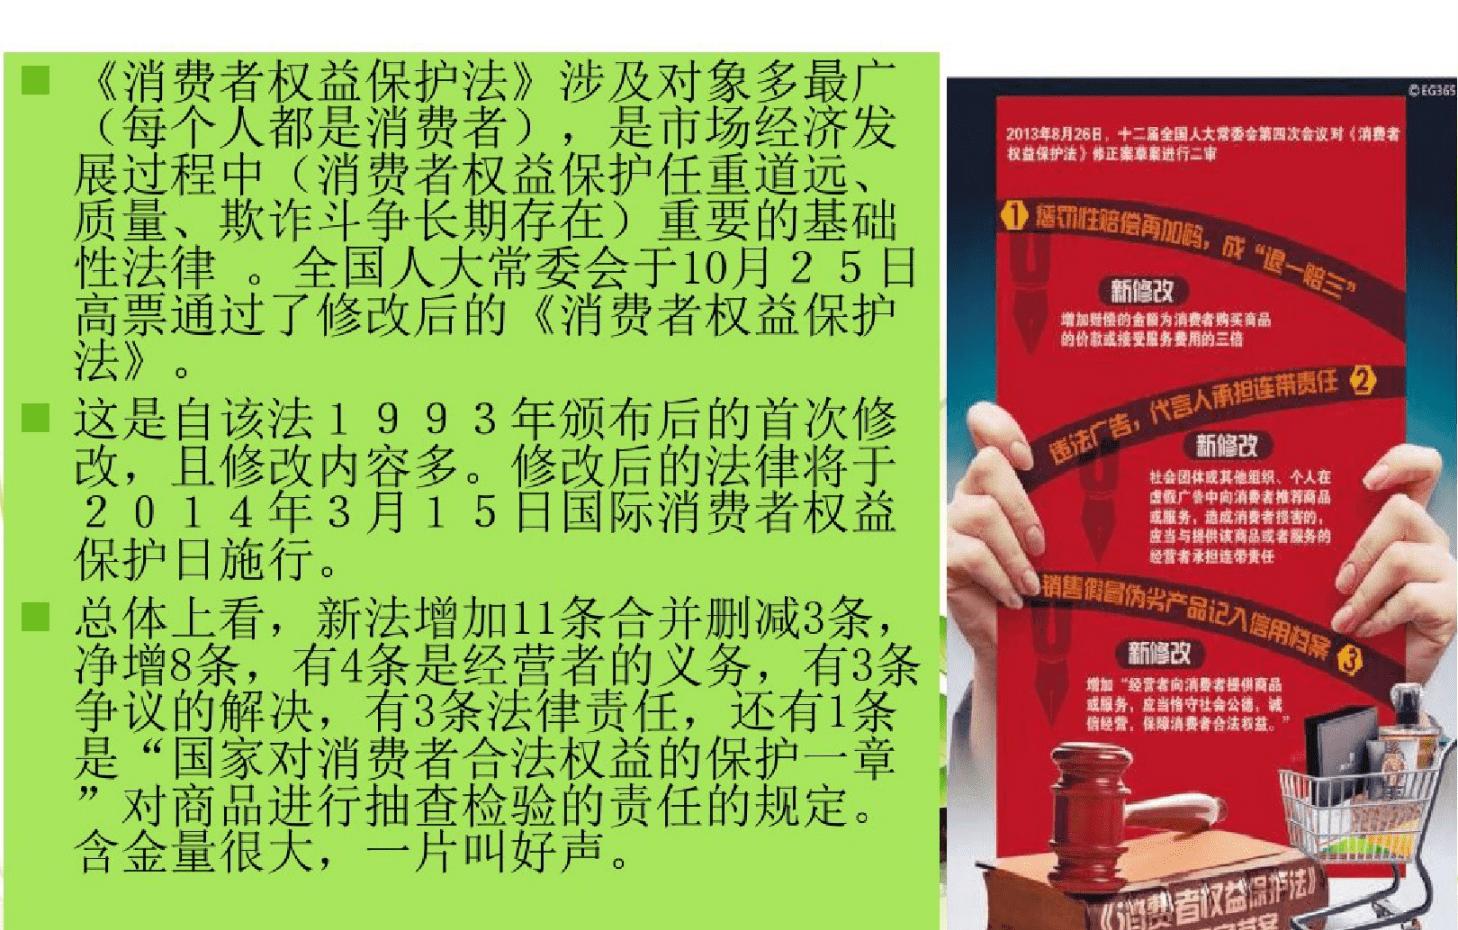 《消费者权益保护法》涉及对象多最广
（每个人都是消费者），是市场经济发
展过程中（消费者权益保护任重道远、
质量、欺诈斗争长期存在）重要的基础
性法律 。全国人大常委会于10月２５日
高票通过了修改后的《消费者权益保护
法》。
这是自该法１９９３年颁布后的首次修
改，且修改内容多。修改后的法律将于
２０１４年３月１５日国际消费者权益
保护日施行。
总体上看，新法增加11条合并删减3条，
净增8条，有4条是经营者的义务，有3条
争议的解决，有3条法律责任，还有1条
是“国家对消费者合法权益的保护一章
”对商品进行抽查检验的责任的规定。
含金量很大，一片叫好声。
©EG365
2013年8月26日，十二届全国人大常委会第四次会议对《消费者
权益保护法》修正案草案进行二审
1 惩罚性赔偿再加码，成“退一赔三”
新修改
增加赔偿的金额为消费者购买商品
的价款或接受服务费用的三倍
违法广告，代言人承担连带责任 2
新修改
社会团体或其他组织、个人在
虚假广告中向消费者推荐商品
或服务，造成消费者损害的，
应当与提供该商品或者服务的
经营者承担连带责任
销售假冒伪劣产品记入信用档案 3
新修改
增加“经营者向消费者提供商品
或服务，应当恪守社会公德，诚
信经营，保障消费者合法权益。”
《消费者权益保护法》